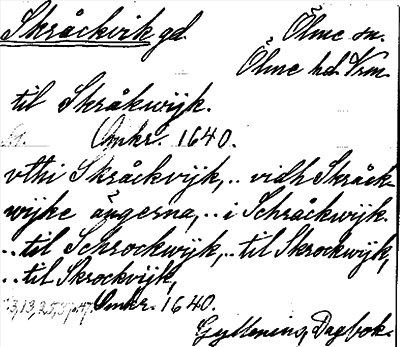 Skråckvik gd. Ölme sn.
Ölme hd. Vrm.
til Skråkwijk.
Omkr. 1640.
vthi Skråckvijk, .. vidh Skråck-
wijke ängerna, .. i Schråckwijk.
.. til Schrockwijk, .. til Skrockwijk,
.. til Skrockvijk,
Omkr. 1640.
Gyllening, Dagbok.